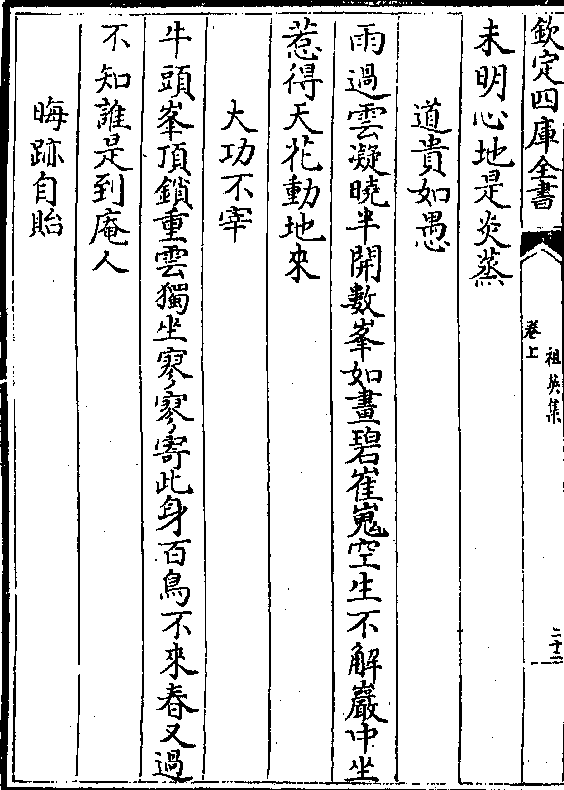 欽定四庫全書
祖英集
卷上
二十二
未明心地是炎蒸
道貴如愚
雨過雲凝曉半開數峯如畫碧崔嵬空生不解巖中坐
惹得天花動地來
大功不宰
牛頭峯頂鎖重雲獨坐寥寥寄此身百鳥不來春又過
不知誰是到庵人
晦跡自貽